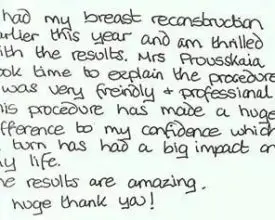 had my breast reconstruction
earlier this year and am thrilled
with the results. Mrs Prousskaia
took time to explain the procedure
was very freindly + professional
his procedure has made a huge
difference to my confidence which
turn has had a big impact on
my life.
he results are amazing.
huge thank you!